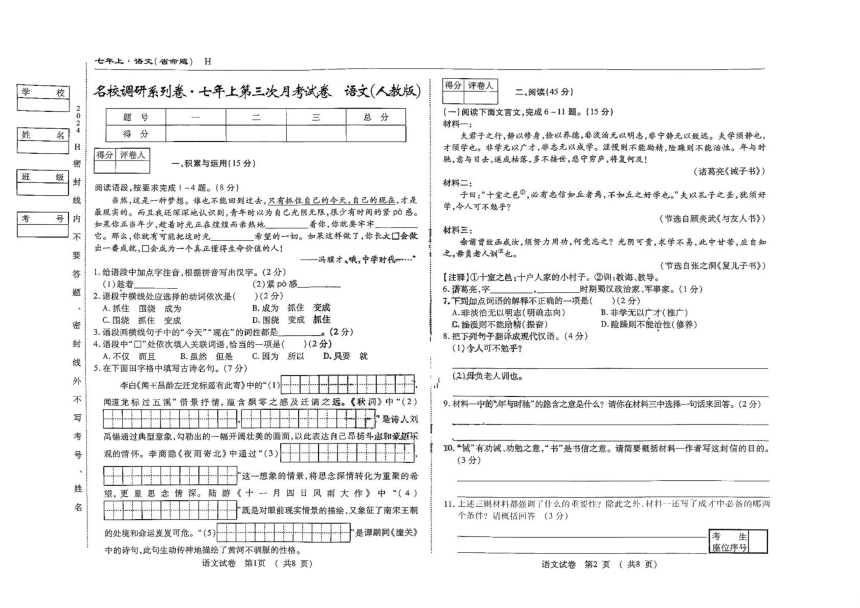 七年上·语文(省命题) H
学 校
姓 名
班 级
考 号
2024 H 密 封 线 内 不 要 答 题 、 密 封 线 外 不 写 考 号 、 姓 名
名校调研系列卷·七年上第三次月考试卷 语文(人教版)
题 号 一 二 三 总 分
得 分
得分 评卷人
一、积累与运用(15分)
阅读语段,按要求完成1~4题。(8分)
当然,这是一种梦想。谁也不能回到过去,只有抓住自己的今天,自己的现在,才是
最现实的。而且我还深深地认识到,青年时以为自己光阴无限,很少有时间的紧pò感。
如果你正当年少,趁着时光正在煌煌而亲热地 着你,你就要牢牢
它。那么,你就有可能把这时光 希望的一切。如果这样做了,你长大囗会做
出一番成就,囗会成为一个真正懂得生命价值的人!
——冯骥才《哦,中学时代……》
1.给语段中加点字注音,根据拼音写出汉字。(2分)
(1)趁着 (2)紧pò感
2.语段中横线处应选择的动词依次是( )(2分)
A.抓住 围绕 成为 B.成为 抓住 变成
C.围绕 抓住 变成 D.围绕 变成 抓住
3.语段画横线句子中的“今天”“现在”的词性都是 。(2分)
4.语段中“囗”处依次填入关联词语,恰当的一项是( )(2分)
A.不仅 而且 B.虽然 但是 C.因为 所以 D.只要 就
5.在下面田字格中填写古诗名句。(7分)
李白《闻王昌龄左迁龙标遥有此寄》中的“(1) ,
闻道龙标过五溪”借景抒情,蕴含飘零之感及迁谪之远。《秋词》中“(2)
, ”是诗人刘
禹锡通过典型意象,勾勒出的一幅开阔壮美的画面,以此表达自己昂扬斗志和豪迈乐
观的情怀。李商隐《夜雨寄北》中通过“(3) ,
”这一想象的情景,将思念深情转化为重聚的希
望,更显思念情深。陆游《十一月四日风雨大作》中“(4)
, ”既是对眼前现实情景的描绘,又象征了南宋王朝
的处境和命运岌岌可危。“(5) ”是谭嗣同《潼关》
中的诗句,此句生动传神地描绘了黄河不驯服的性格。
语文试卷 第1页 (共8页)
得分 评卷人
二、阅读(45分)
(一)阅读下面文言文,完成6~11题。(15分)
材料一:
夫君子之行,静以修身,俭以养德,非淡泊无以明志,非宁静无以致远。夫学须静也,
才须学也。非学无以广才,非志无以成学。淫慢则不能励精,险躁则不能治性。年与时
驰,意与日去,遂成枯落,多不接世,悲守穷庐,将复何及!
(诸葛亮《诫子书》)
材料二:
子曰:“十室之邑①,必有忠信如丘者焉,不如丘之好学也。”夫以孔子之圣,犹须好
学,今人可不勉乎?
(节选自顾炎武《与友人书》)
材料三:
余前曾致函戒汝,须努力用功,何竟忘之?光阴可贵,求学不易,此中甘苦,应自知
之,毋负老人训②也。
(节选自张之洞《复儿子书》)
【注释】①十室之邑:十户人家的小村子。②训:教诲、教导。
6.诸葛亮,字 , 时期蜀汉政治家、军事家。(1分)
7.下列加点词语的解释不正确的一项是( )(2分)
A.非淡泊无以明志(明确志向) B.非学无以广才(推广)
C.淫慢则不能励精(振奋) D.险躁则不能治性(修养)
8.把下列句子翻译成现代汉语。(4分)
(1)今人可不勉乎?
(2)毋负老人训也。
9.材料一中的“年与时驰”的隐含之意是什么?请你在材料三中选择一句话来回答。(2分)
10.“诫”有劝诫、劝勉之意,“书”是书信之意。请简要概括材料一作者写这封信的目的。
(3分)
11.上述三则材料都强调了什么的重要性?除此之外,材料一还写了成才中必备的哪两
个条件?请概括回答(3分)
考 生
座位序号
语文试卷 第2页 (共8页)